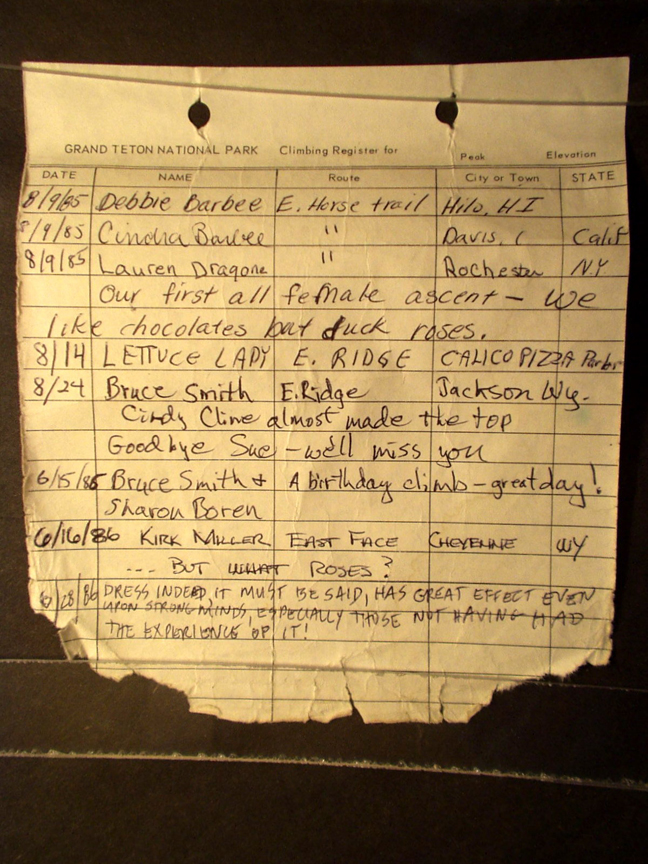 GRAND TETON NATIONAL PARK Climbing Register for Peak Elevation
DATE NAME Route City or Town STATE
8/9/85 Debbie Barbee E. Horse trail Hilo, HI
8/9/85 Cindra Barbee " Davis, ( Calif
8/9/85 Lauren Dragone " Rochester NY
Our first all female ascent - we
like chocolates but fuck roses.
8/14 LETTUCE LADY E. RIDGE CALICO PIZZA
8/24 Bruce Smith E. Ridge Jackson Wy.
Cindy Cline almost made the top
Goodbye Sue - we'll miss you
6/15/86 Bruce Smith + A birthday climb - great day!
Sharon Boren
6/16/86 KIRK MILLER EAST FACE CHEYENNE WY
... BUT WHAT ROSES?
/28/86 DRESS INDEED, IT MUST BE SAID, HAS GREAT EFFECT EVEN
UPON STRONG MINDS, ESPECIALLY THOSE NOT HAVING HAD
THE EXPERIENCE OF IT!